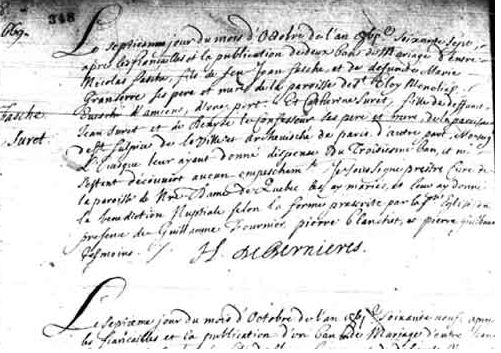 348
669
Le septiesme jour du mois d'Octobre de l'an soixante sept
apres les fiancailles et la publication de deux bans du Mariage d'entre
Nicolas Fasche, fils de feu Jean Fasche, et de defunte Marie
ses pere et mere de la paroisse de St Eloy
d'amiens, d'une part: Et Catherine Suret, fille de deffunt
Fasche
Suret
Jean Suret et de le confesseur ses pere et mere, de la paroisse
de St Sulpice de la Ville et Archevesché de paris d'autre part,
l'Evesque leur ayant donné dispense du Troisiesme ban, et ne
s'estant découvert aucun empeschemt Je soussigné prestre Curé de
la paroisse de Nre Dame de Quebec les ay mariés, et leur ay donné
la benediction Nuptiale selon la forme prescrite par la Ste Eglise en
presence de Guillaume Fournier, pierre et pierre
tesmoins.
H. de Bernieres.
Le septieme jour du mois d'Octobre de l'an soixante neuf apres
les fiancailles et la publication d'un ban de Mariage d'entre